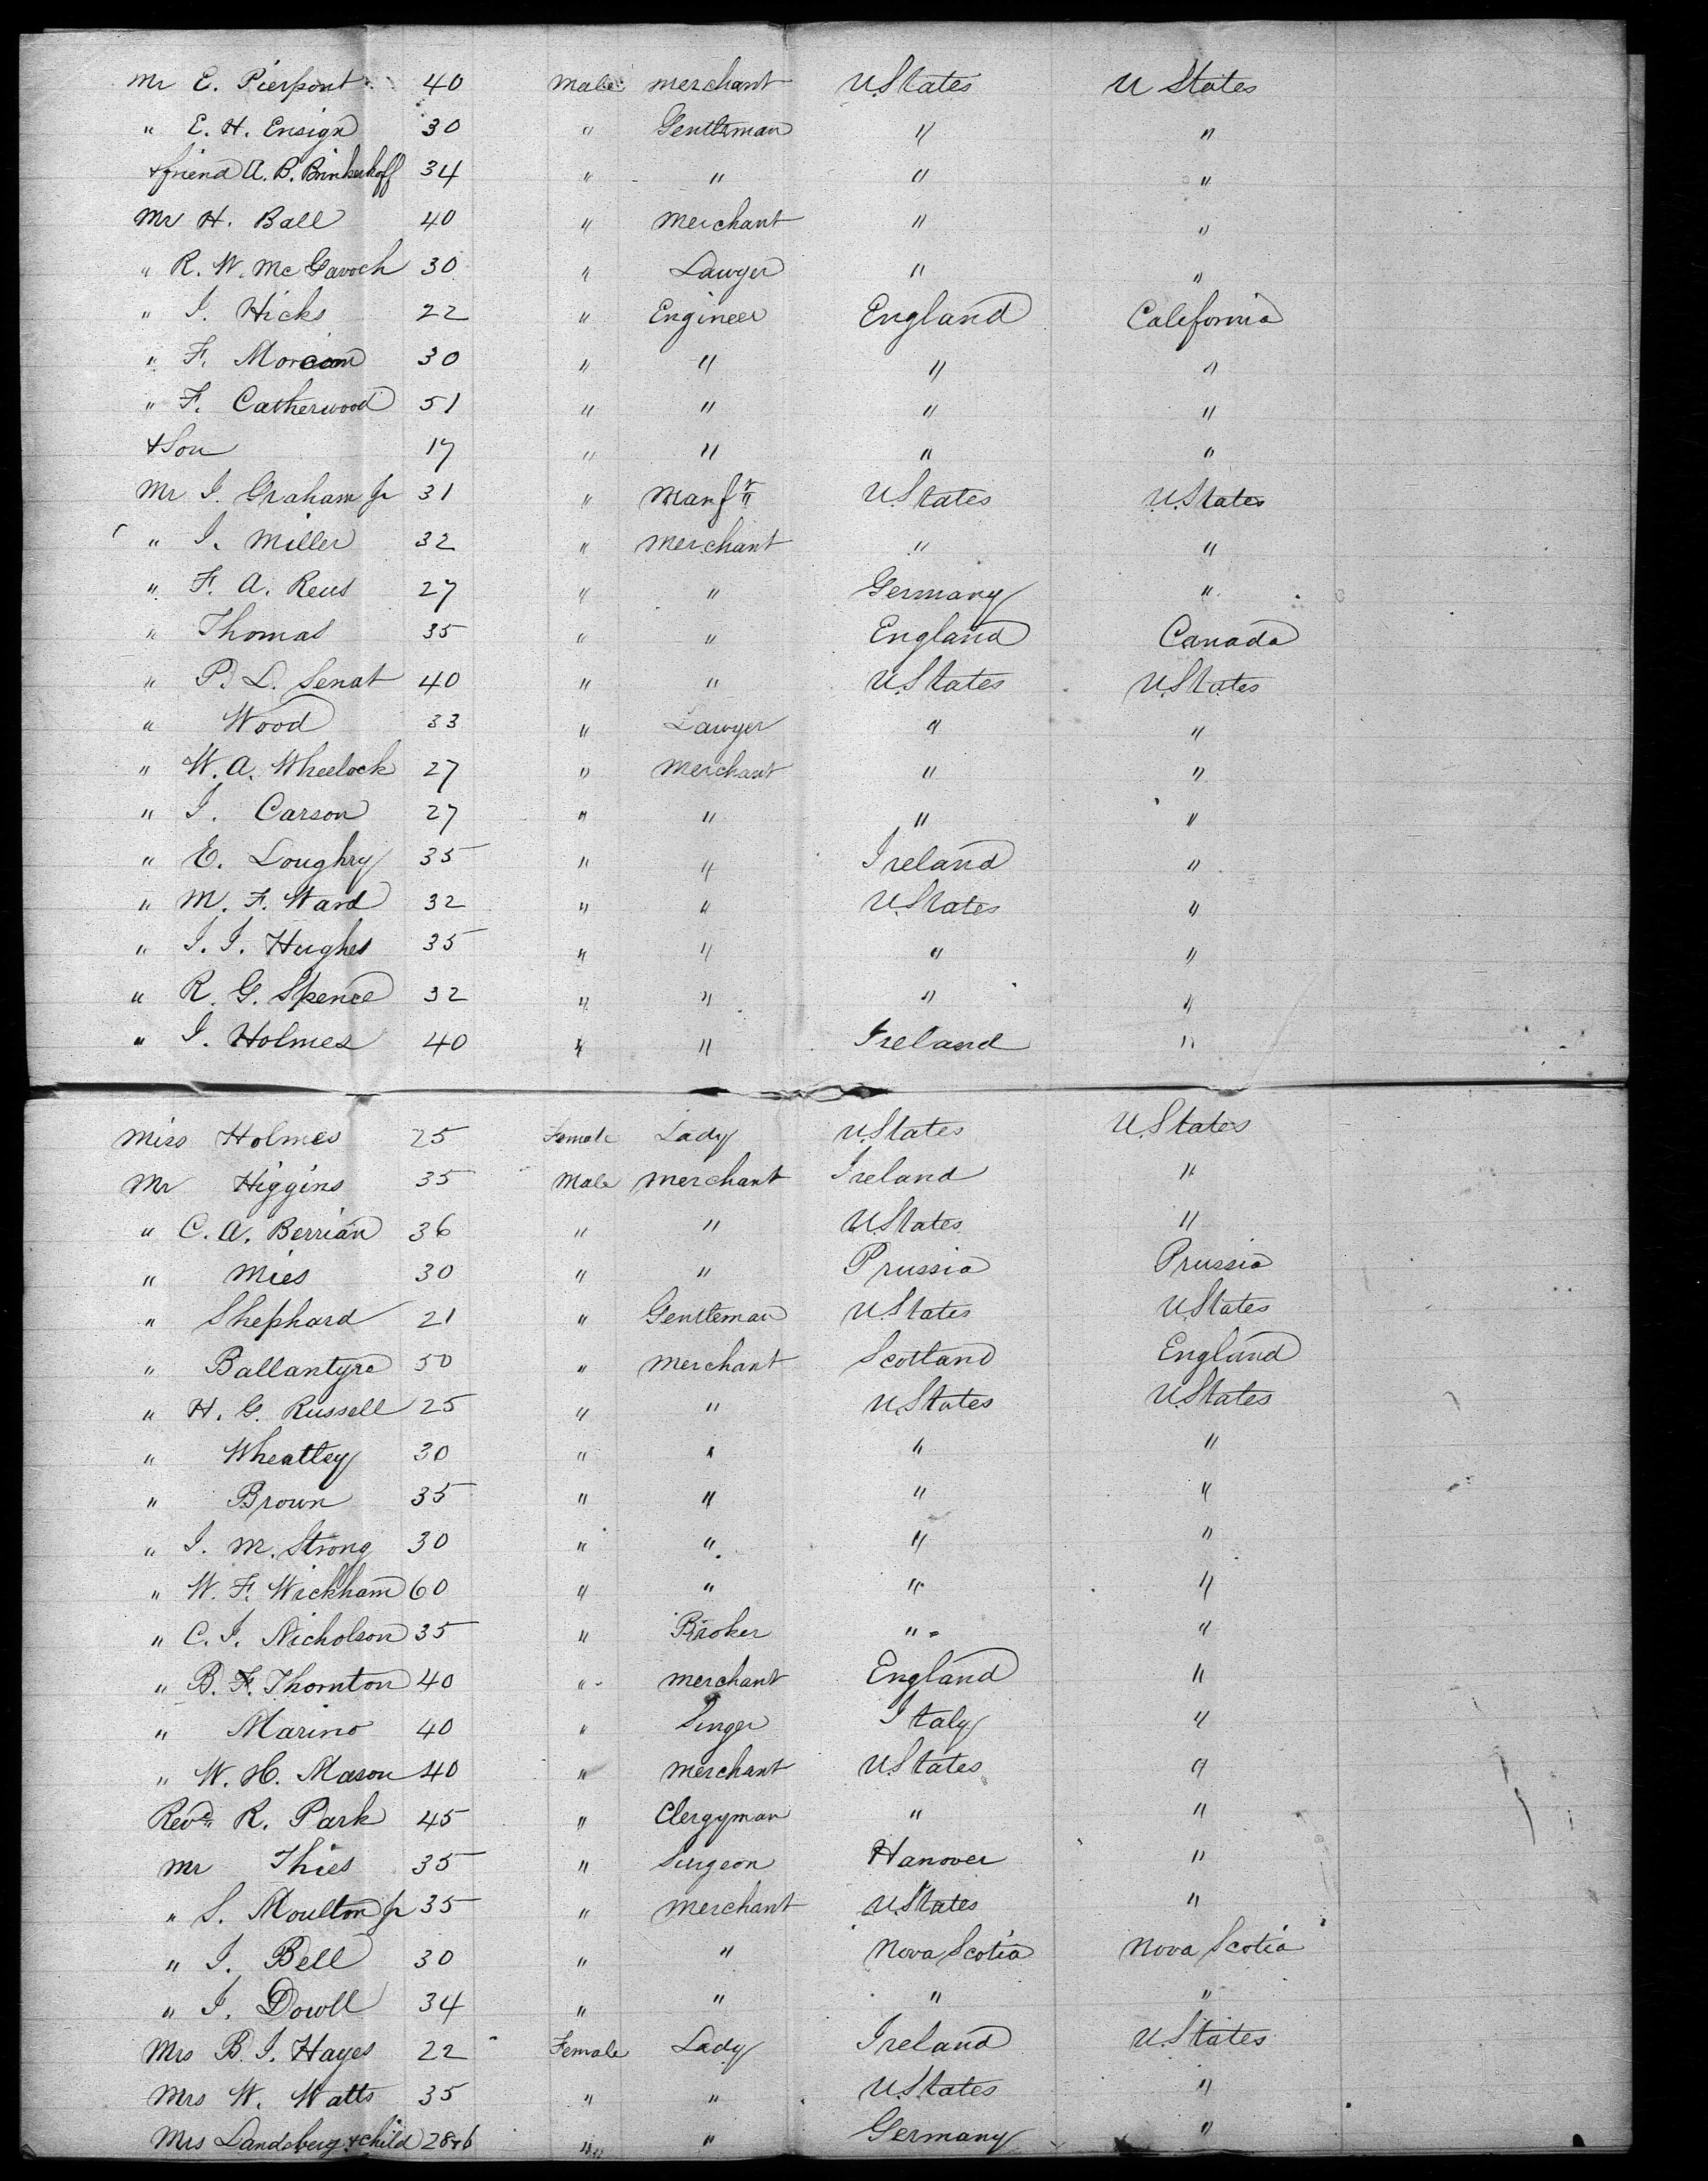 Mr E. Pierpont 40 Male Merchant U.States U States
" E. H. Ensign 30 " Gentleman " "
& friend A. B. Brinkerhoff 34 " " " "
Mr H. Ball 40 " Merchant " "
" R. W. McGavoch 30 " Lawyer " "
" I. Hicks 22 " Engineer England California
" F. Morcom 30 " " " "
" F. Catherwood 51 " " " "
& Son 17 " " " "
Mr I. Graham Jr 31 " Manfr U.States U.States
" I. Miller 32 " Merchant " "
" F. A. Reus 27 " " Germany "
" Thomas 35 " " England Canada
" P. L. Senat 40 " " U.States U.States
" Wood 33 " Lawyer " "
" W. A. Wheelock 27 " Merchant " "
" I. Carson 27 " " " "
" E. Loughry 35 " " Ireland "
" M. F. Ward 32 " " U.States "
" I. I. Hughes 35 " " " "
" R. G. Spence 32 " " " "
" I. Holmes 40 " " Ireland "
Miss Holmes 25 Female Lady U.States U.States
Mr Higgins 35 Male Merchant Ireland "
" C. A. Berrian 36 " " U.States "
" Mies 30 " " Prussia Prussia
" Shephard 21 " Gentleman U.States U.States
" Ballantyre 50 " Merchant Scotland England
" H. G. Russell 25 " " U.States U.States
" Wheatley 30 " " " "
" Brown 35 " " " "
" I. M. Strong 30 " " " "
" W. F. Wickham 60 " " " "
" C. I. Nicholson 35 " Broker " "
" B. F. Thornton 40 " Merchant England "
" Marino 40 " Singer Italy "
" W. H. Mason 40 " Merchant U.States "
Revd R. Park 45 " Clergyman " "
Mr Thies 35 " Surgeon Hanover "
" S. Moulton Jr 35 " Merchant U.States "
" I. Bell 30 " " Nova Scotia Nova Scotia
" I. Dowll 34 " " " "
Mrs B. I. Hayes 22 Female Lady Ireland U.States
Mrs W. Watts 35 " " U.States "
Mrs Landsberg & child 28 & 6 " " Germany "